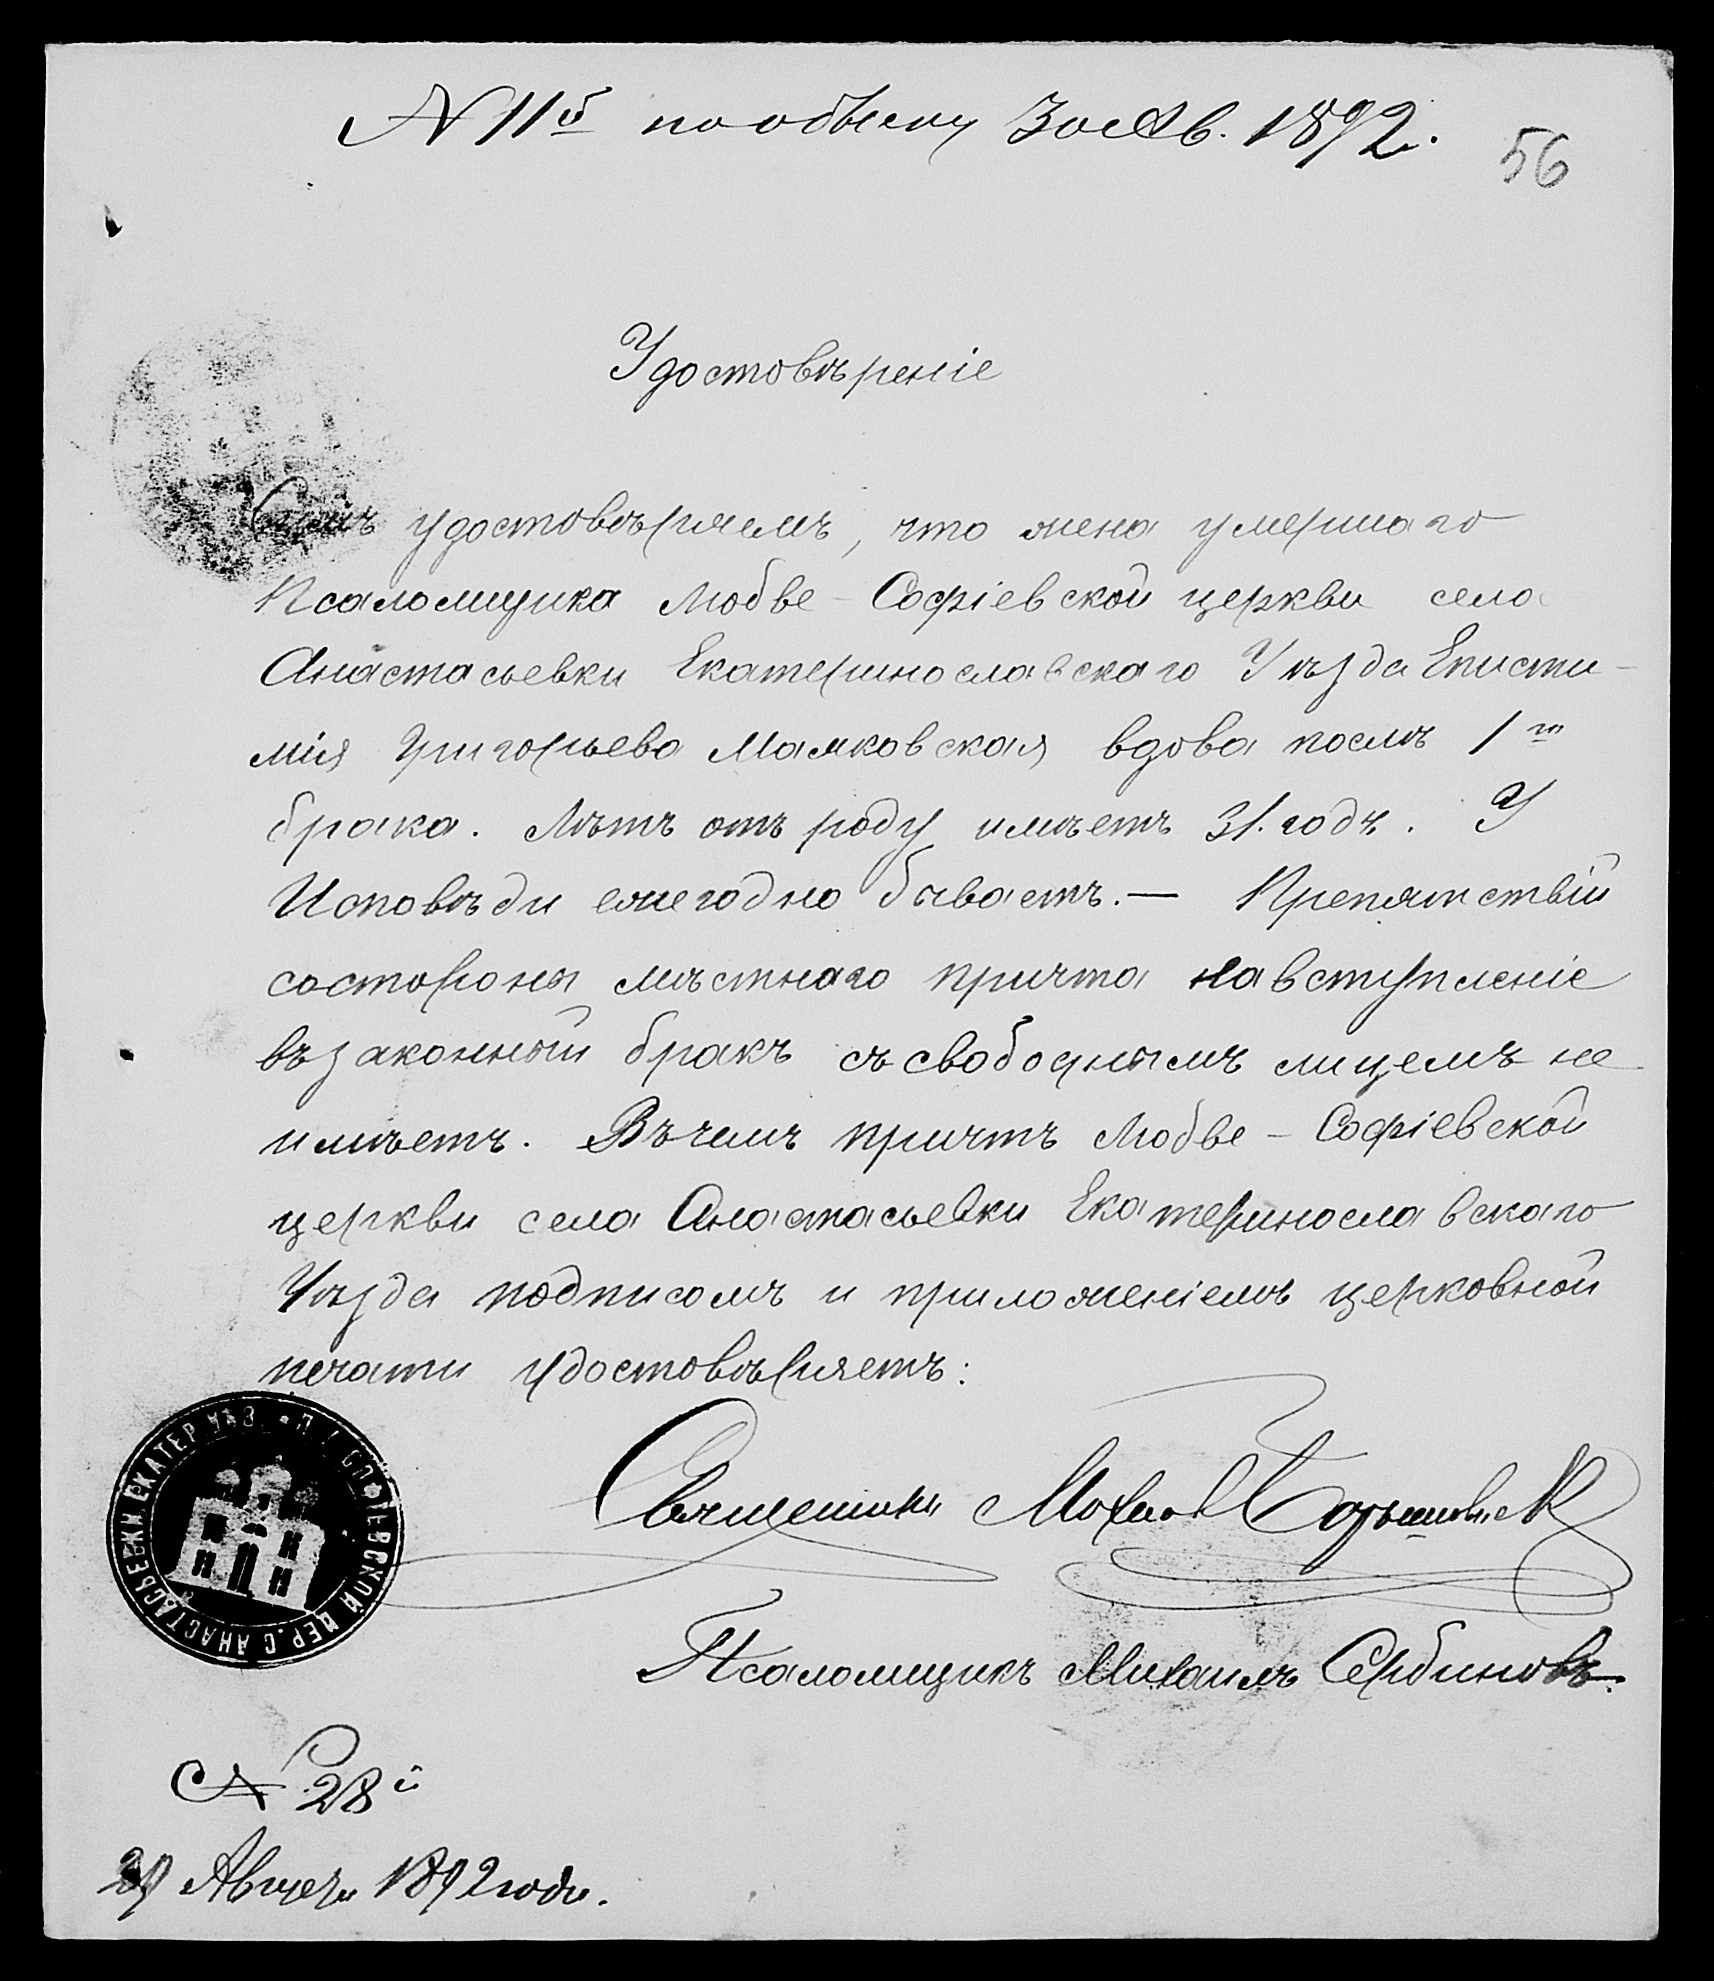 № 11й по обыску 30 Ав. 1892.
56
Удостовѣреніе
Симъ удостовѣряемъ, что жена умершаго
Псаломщика Любве-Софіевской церкви села
Анастасьевки Екатеринославскаго Уѣзда Еписти-
мія Григорьева Маяковская вдова послѣ 1го
брака. Лѣтъ отъ роду имѣетъ 31. годъ. У
Исповѣди ежегодно бываетъ. — Препятствій
состороны мѣстнаго причта навступленіе
възаконный бракъ съ свободнымъ лицемъ не
имѣетъ. Въ чемъ причтъ Любве-Софіевской
церкви села Анастасьевки Екатеринославскаго
Уѣзда подписомъ и приложеніемъ церковной
печати удостовѣряетъ:
Священникъ
Псаломщикъ Михаилъ Сербиновъ.
СОФІЕВСКОЙ ЦЕР. С. АНАСТАСЬЕВКИ ЕКАТЕР. УѢЗ.
№ 28й
29 Августа 1892 года.